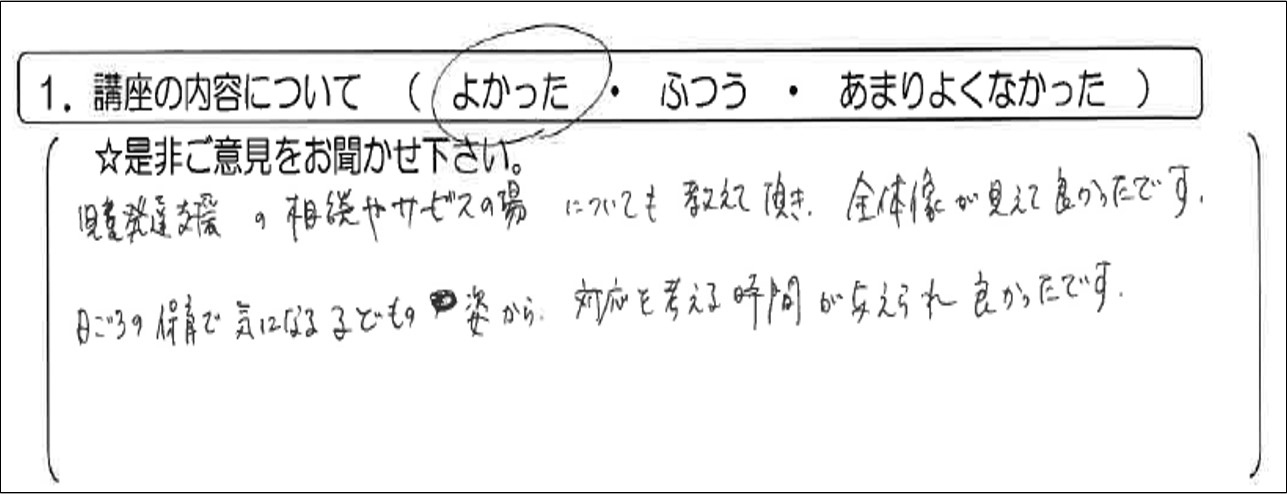 1. 講座の内容について （ よかった ・ ふつう ・ あまりよくなかった ）
☆是非ご意見をお聞かせ下さい。
児童発達支援の相談やサービスの場についても教えて頂き、全体像が見えて良かったです。
日ごろの保育で気になる子どもの姿から、対応を考える時間が与えられ良かったです。